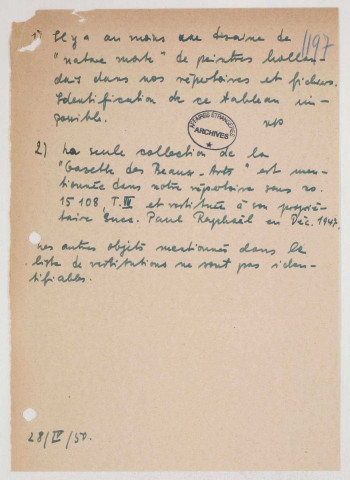 1197
1) Il y a au moins une dizaine de
"nature morte" de peintres hollan-
dais dans nos répertoires et fichiers.
Identification de ce tableau im-
possible.
AFFAIRES ETRANGÈRES
ARCHIVES
2) La seule collection de la
"Gazette des Beaux-Arts" est men-
tionnée dans notre répertoire sous no.
15 108, T. IV et restituée à son proprié-
taire Succ. Paul Raphaël en Déc. 1947.
Les autres objets mentionnés dans la
liste de restitutions ne sont pas iden-
tifiables.
28/IV/50.